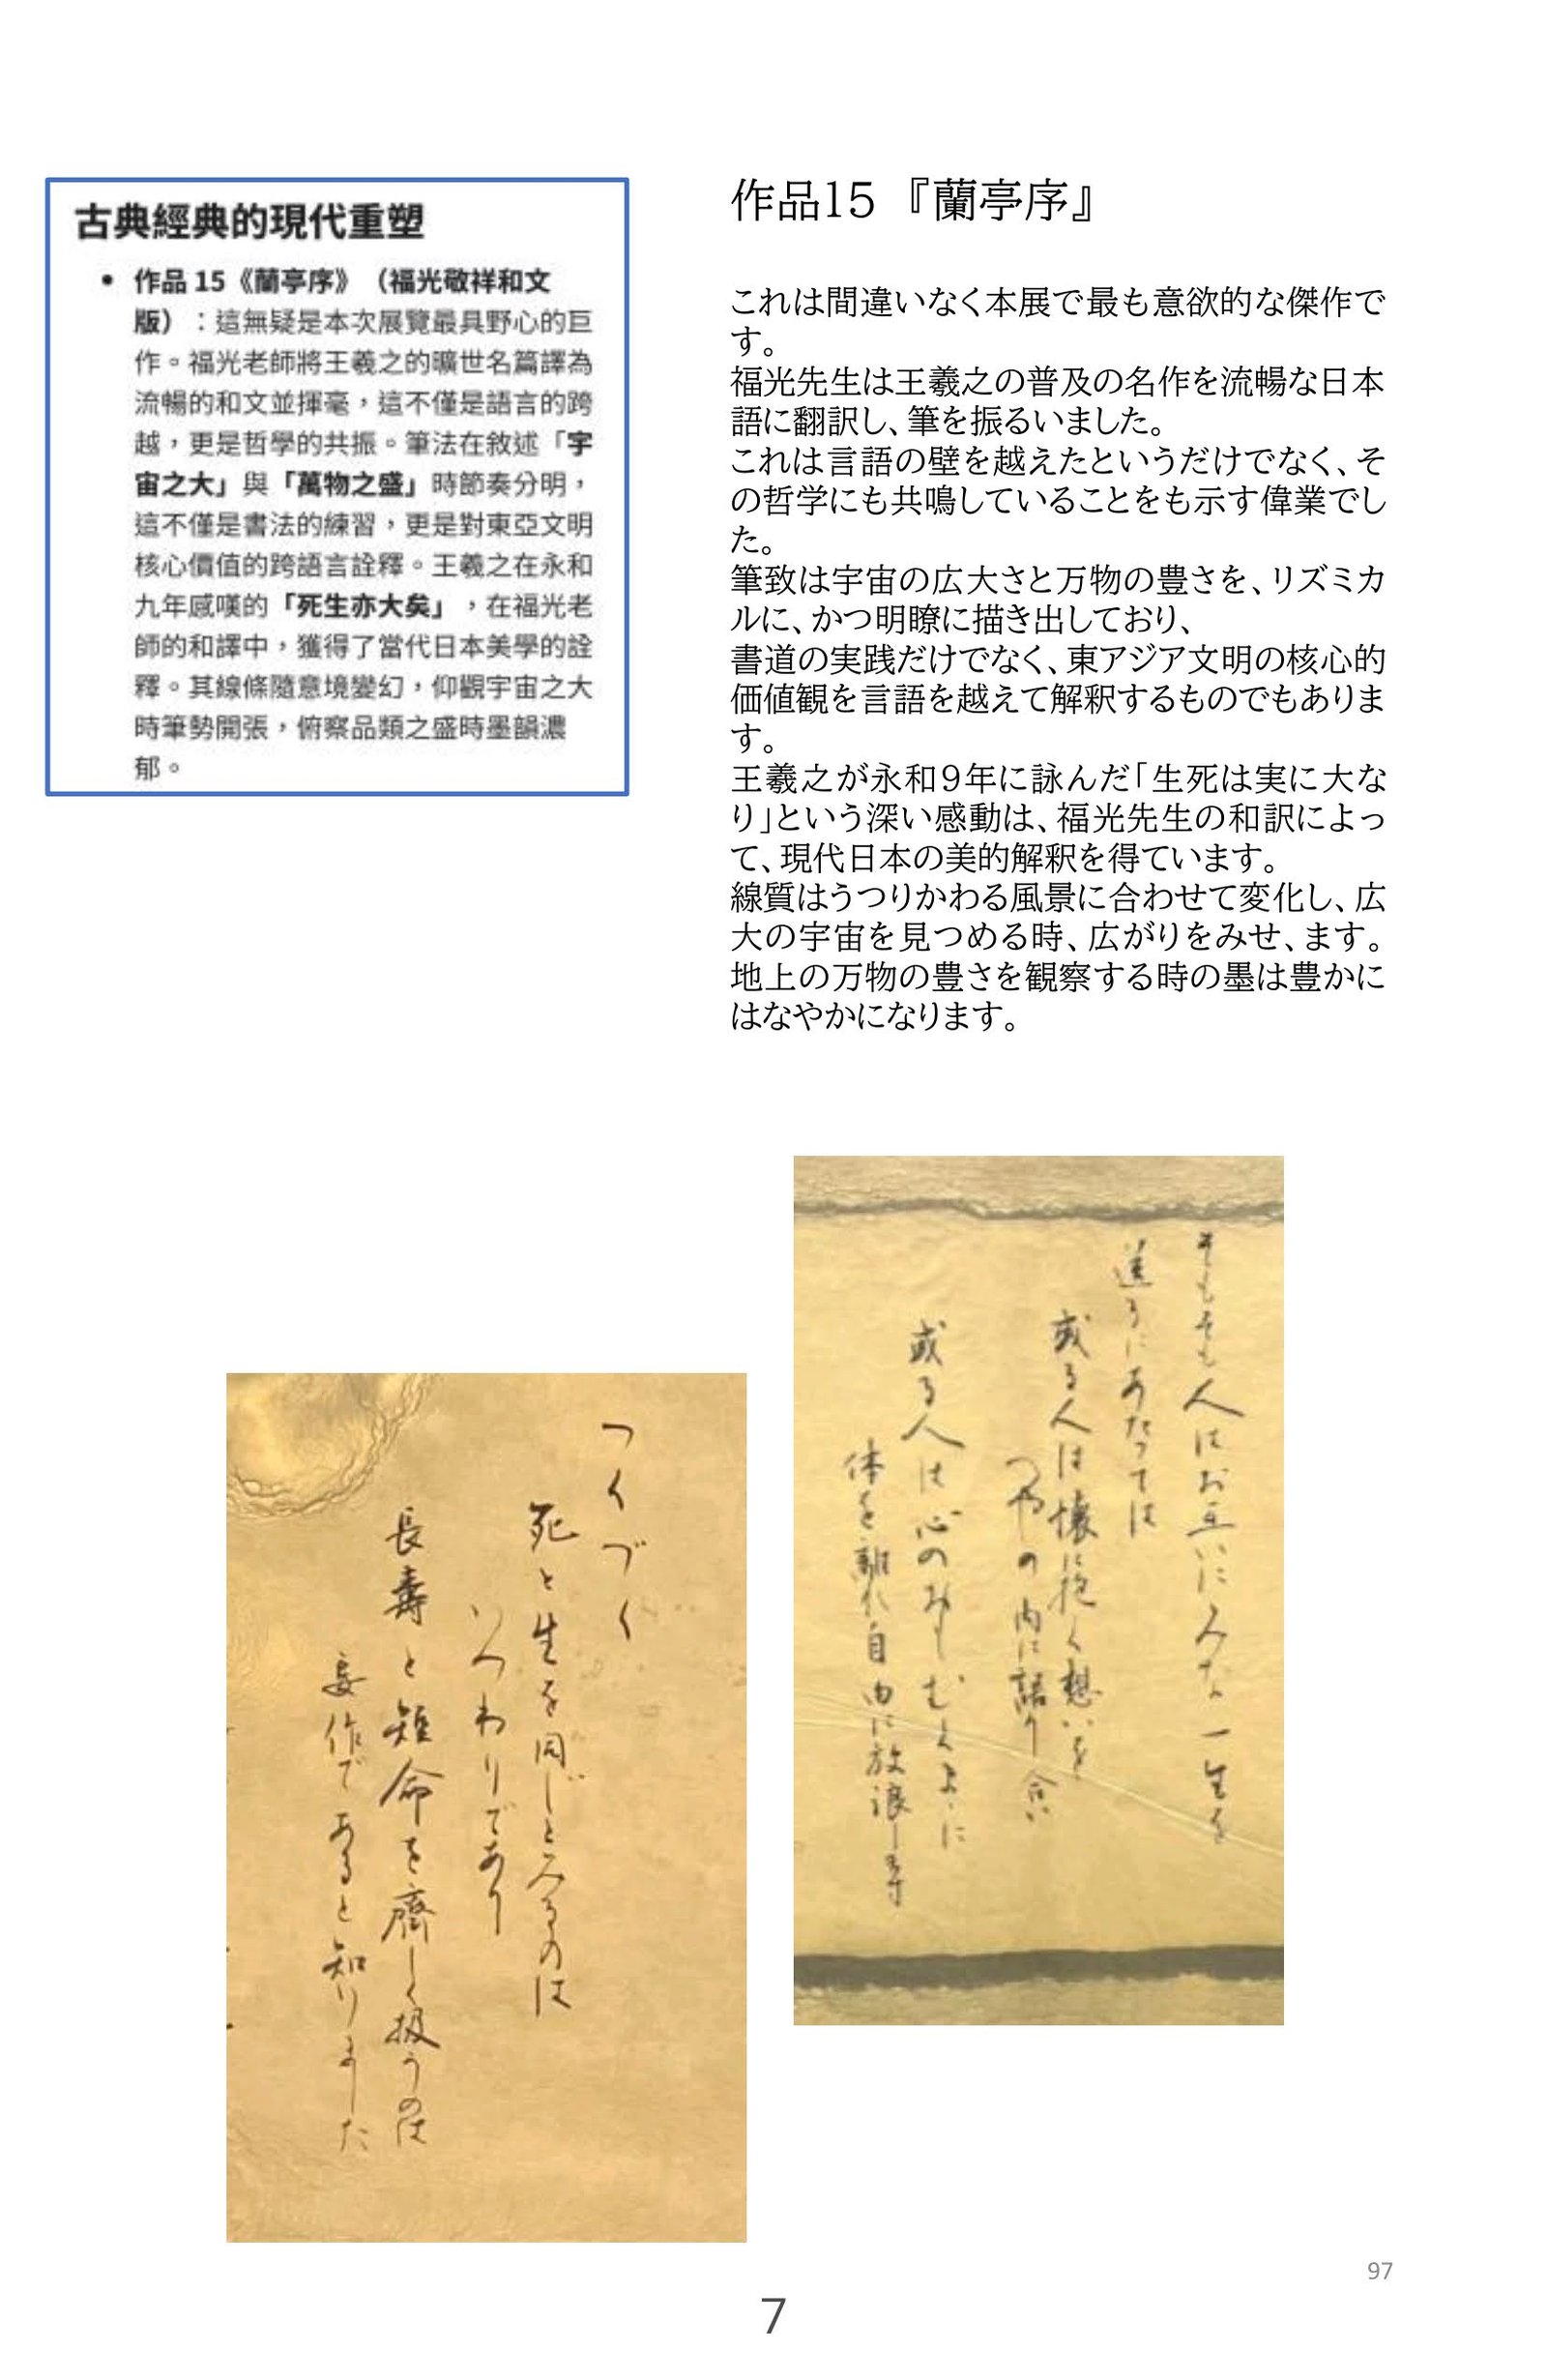 古典經典的現代重塑
• 作品 15《蘭亭序》（福光敬祥和文
版）：這無疑是本次展覽最具野心的巨
作。福光老師將王羲之的曠世名篇譯為
流暢的和文並揮毫，這不僅是語言的跨
越，更是哲學的共振。筆法在敘述「宇
宙之大」與「萬物之盛」時節奏分明，
這不僅是書法的練習，更是對東亞文明
核心價值的跨語言詮釋。王羲之在永和
九年感嘆的「死生亦大矣」，在福光老
師的和譯中，獲得了當代日本美學的詮
釋。其線條隨意境變幻，仰觀宇宙之大
時筆勢開張，俯察品類之盛時墨韻濃
郁。
作品15『蘭亭序』
これは間違いなく本展で最も意欲的な傑作で
す。
福光先生は王羲之の普及の名作を流暢な日本
語に翻訳し、筆を振るいました。
これは言語の壁を越えたというだけでなく、そ
の哲学にも共鳴していることをも示す偉業でし
た。
筆致は宇宙の広大さと万物の豊さを、リズミカ
ルに、かつ明瞭に描き出しており、
書道の実践だけでなく、東アジア文明の核心的
価値観を言語を越えて解釈するものでもありま
す。
王羲之が永和9年に詠んだ「生死は実に大な
り」という深い感動は、福光先生の和訳によっ
て、現代日本の美的解釈を得ています。
線質はうつりかわる風景に合わせて変化し、広
大の宇宙を見つめる時、広がりをみせ、ます。
地上の万物の豊さを観察する時の墨は豊かに
はなやかになります。
そもそも人はお互いにみな一生を
送るにあたっては
或る人は懐に抱く想いを
の内に語り合い
或る人は心のおもむくまゝに
体を離れ自由に放浪し
つくづく
死と生を同じとみるのは
いつわりであり
長壽と短命を齊しく扱うのは
妄作であると知りました
97
7